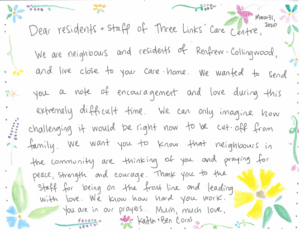 March 31, 2020
Dear residents + staff of Three Links' Care Centre,
We are neighbours and residents of Renfrew-Collingwood,
and live close to you care-home. We wanted to send
you a note of encouragement and love during this
extremely difficult time. We can only imagine how
challenging it would be right now to be cut-off from
family. We want you to know that neighbours in
the community are thinking of you and praying for
peace, strength and courage. Thank you to the
Staff for being on the front line and leading
with love. We know how hard you work.
You are in our prayers. Much, much love,
+ Ben